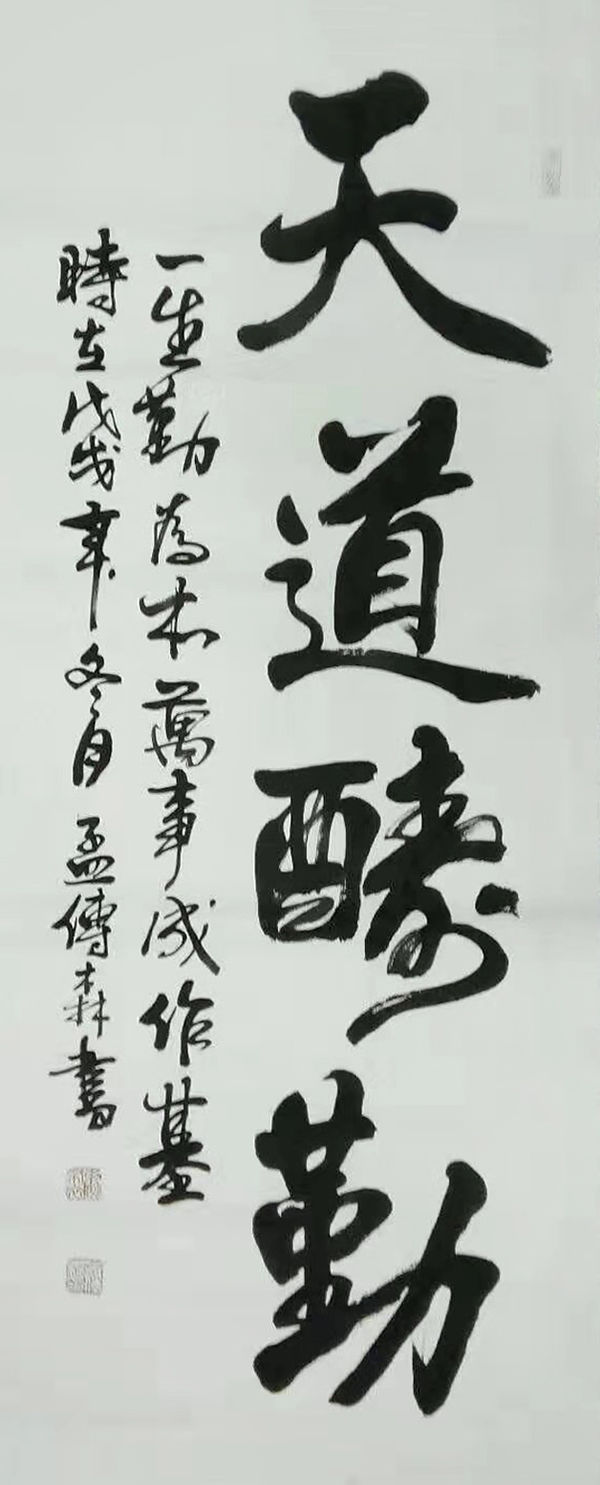 天道酬勤
一生勤為本萬事成作基
時在戊戌年冬月孟傳森書